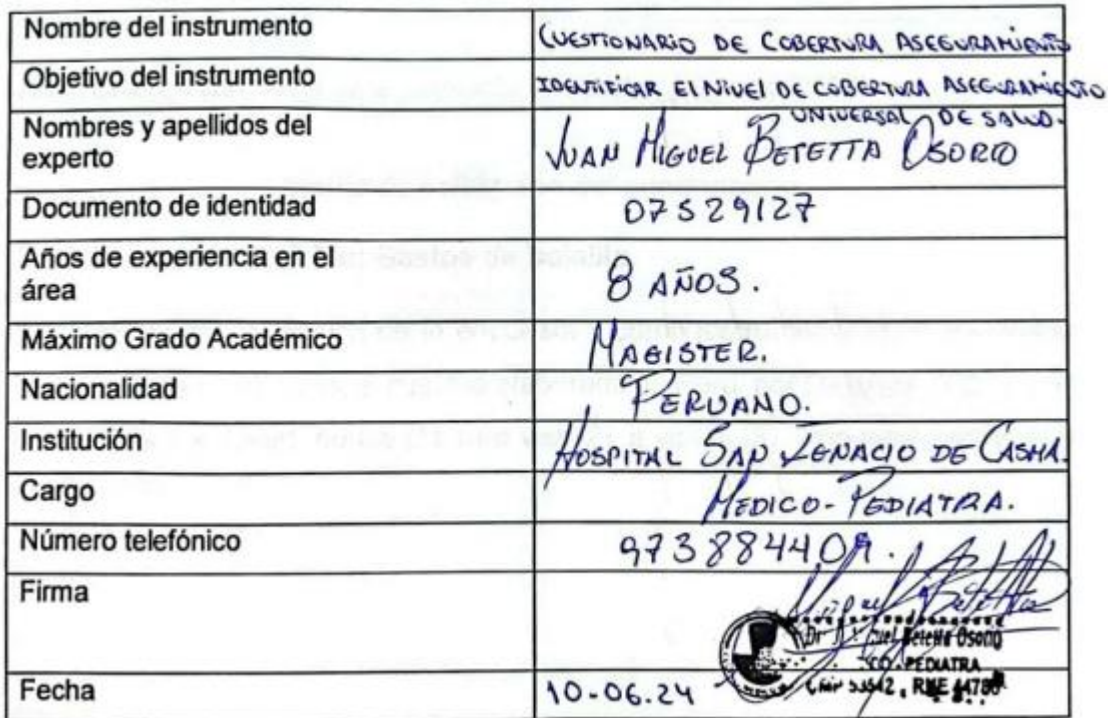 Nombre del instrumento
CUESTIONARIO DE COBERTURA ASEGURAMIENTO
Objetivo del instrumento
IDENTIFICAR El NIVEl DE COBERTURA ASEGURAMIENTO
UNIVERSAL DE SALUD.
Nombres y apellidos del
experto
JUAN MIGUEL BETETTA OSORIO
Documento de identidad
07529127
Años de experiencia en el
área
8 AÑOS.
Máximo Grado Académico
MAGISTER.
Nacionalidad
PERUANO.
Institución
HOSPITAL SAN IGNACIO DE CASMA.
Cargo
MEDICO-PEDIATRA.
Número telefónico
973884409.
Firma
Dr Betetta Osorio
PEDIATRA
CMP 53542, RNE
Fecha
10-06.24